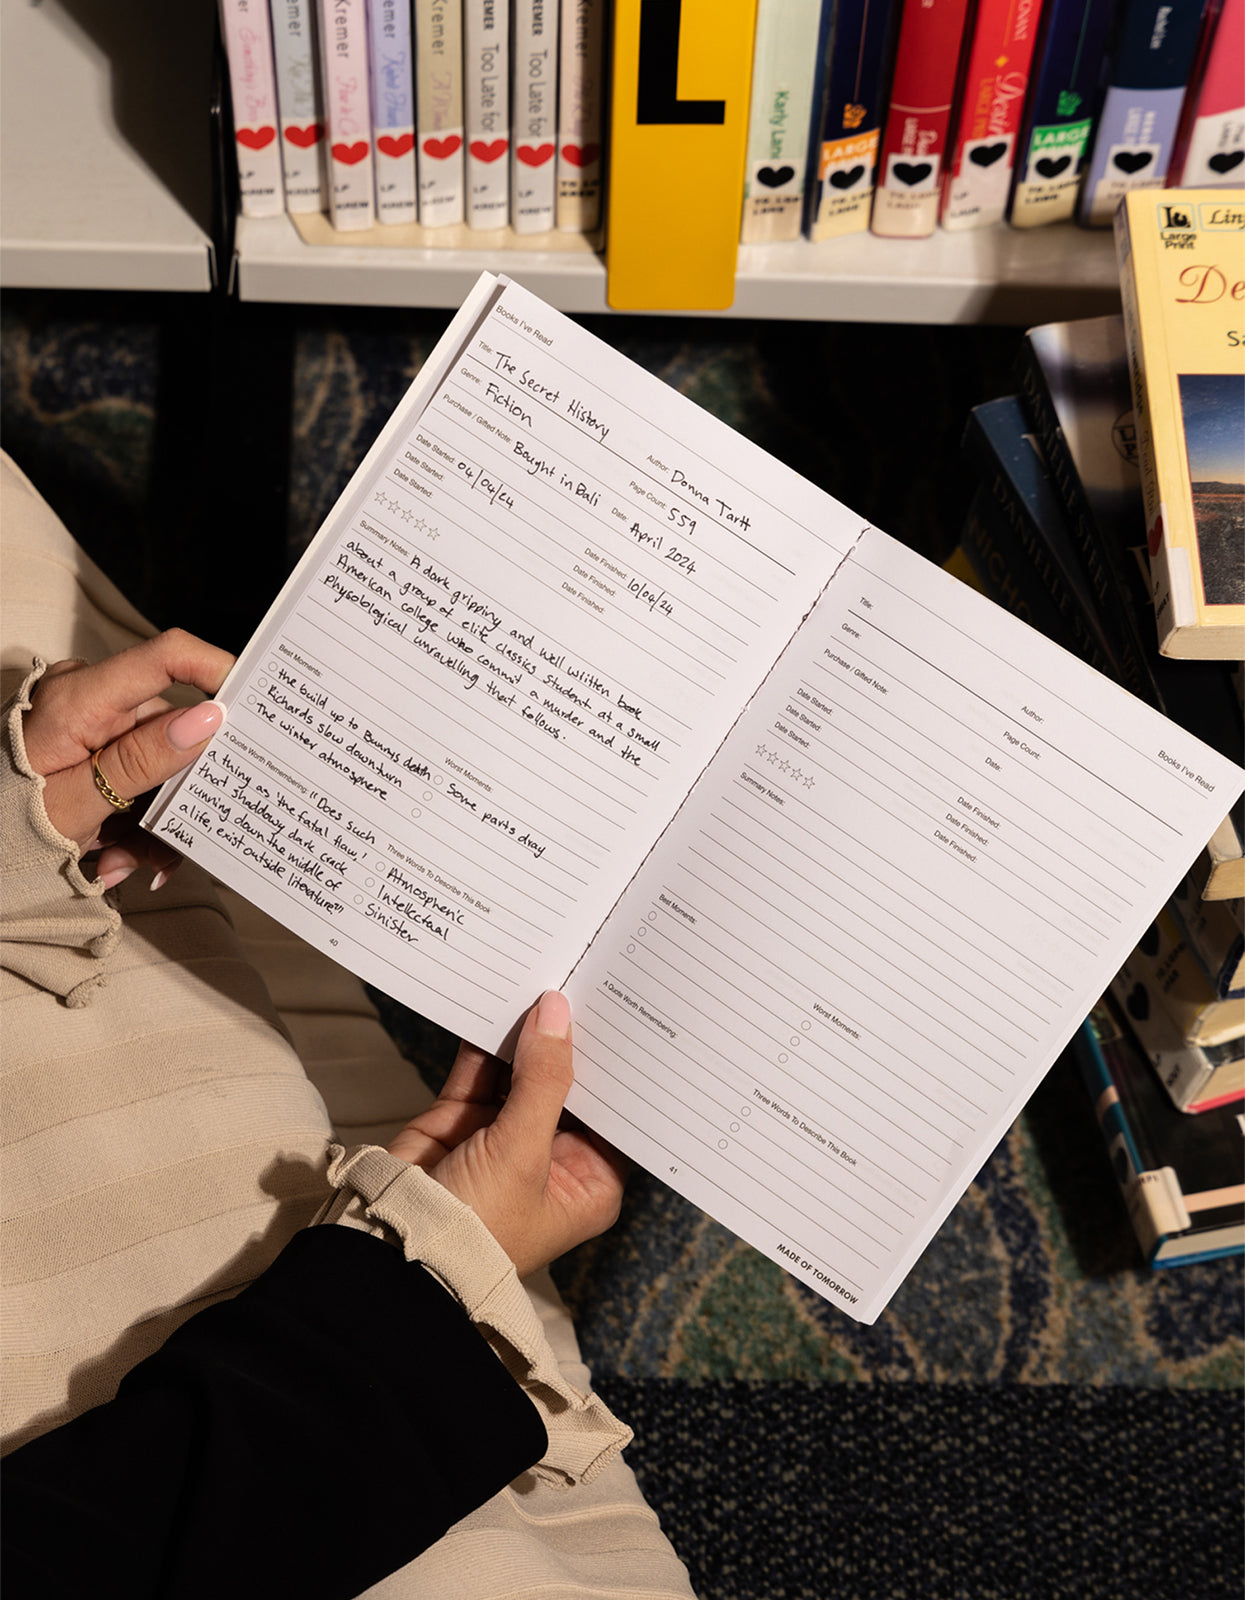 Kremer
Kremer
Kremer
Kremer
KREMER
Too Late for
KREMER
Too Late for
Kremer
LP
KREW
LP
KREW
LP
KREW
LP
KREW
LP
KREW
LP
KREW
L
Karly Lane
LARGE
LARGE
LARGE
Large
Print
De
Sa
Books I've Read
Title: The Secret History
Author: Donna Tartt
Genre: Fiction
Page Count: 559
Purchase / Gifted Note: Bought in Bali
Date: April 2024
Date Started: 04/04/24
Date Finished: 10/04/24
Date Started:
Date Finished:
Date Started:
Date Finished:
Summary Notes: A dark gripping and well written book
about a group of elite classics student at a small
American college who commit a murder and the
physological unravelling that follows.
Best Moments:
the build up to Bunnys death
Richards slow downturn
The winter atmosphere
Worst Moments:
Some parts dray
A Quote Worth Remembering: "Does such
a thing as 'the fatal flaw,'
that shaddowy dark crack
running down the middle of
a life, exist outside literature?"
Three Words To Describe This Book
Atmospheric
Intellectual
Sinister
40
Books I've Read
Title:
Author:
Genre:
Page Count:
Purchase / Gifted Note:
Date:
Date Started:
Date Finished:
Date Started:
Date Finished:
Date Started:
Date Finished:
Summary Notes:
Best Moments:
Worst Moments:
A Quote Worth Remembering:
Three Words To Describe This Book
41
MADE OF TOMORROW